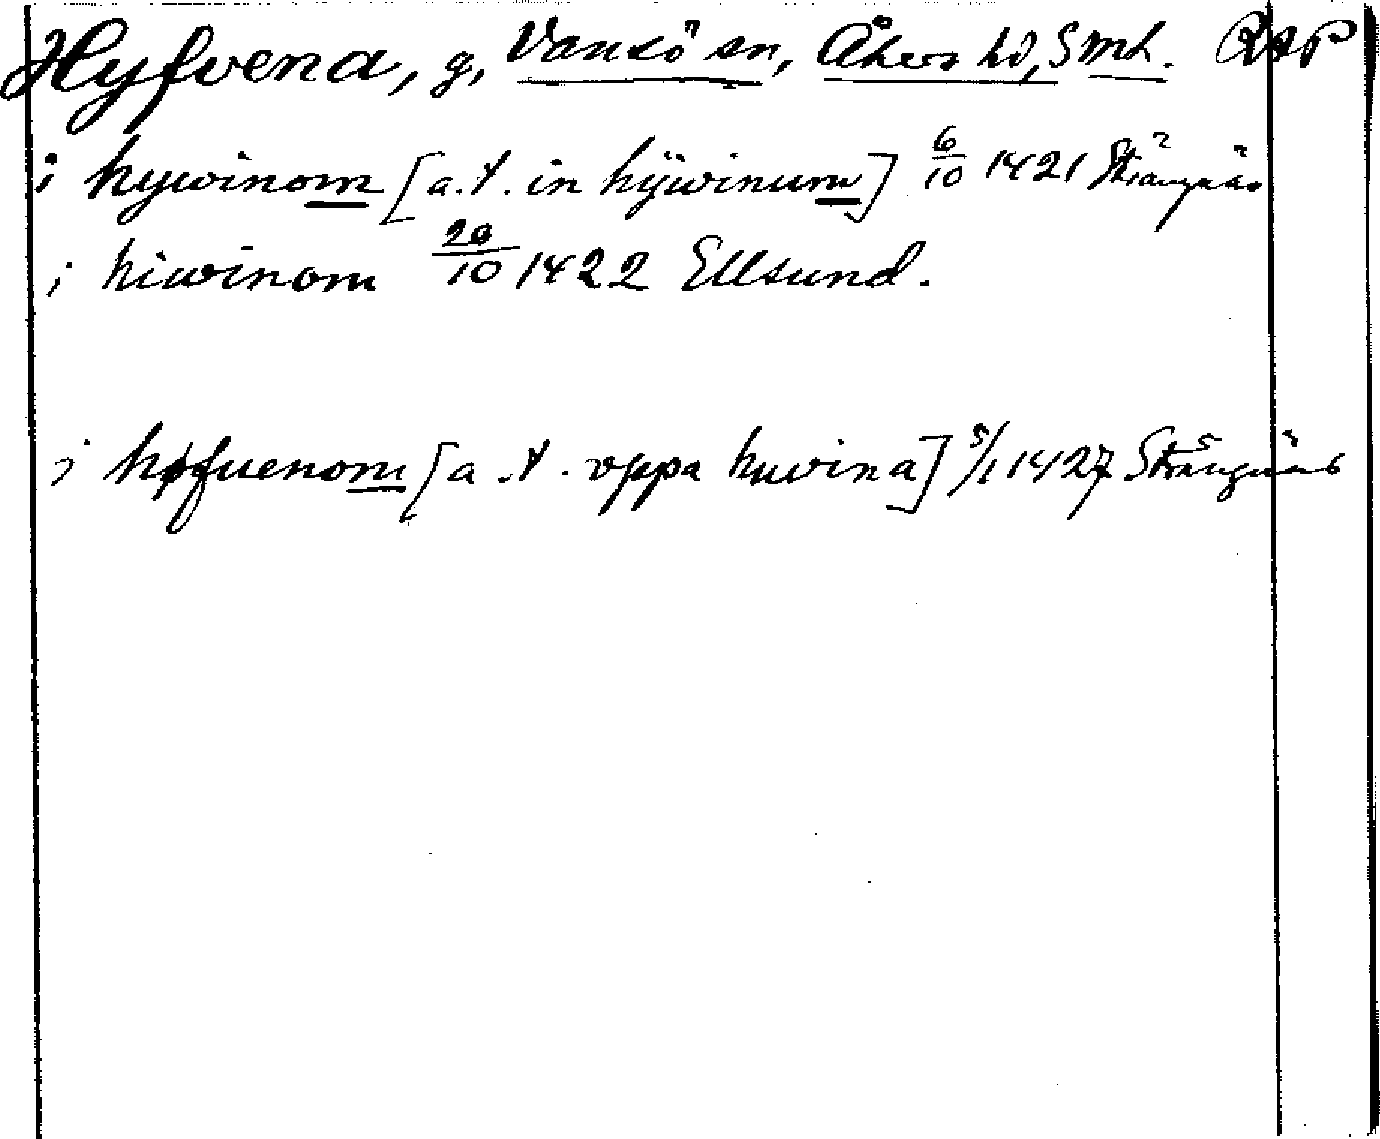 Hyfvena, g, Vansö sn, Åkers hd, Sml. RAP
i hywinom [a.t. in hÿwinum] 6/10 1421 Strängnäs
i hiwinom 20/10 1422 Ellsund.
i høfuenom [a.t. vppa huvina] 5/1 1427 Strängnäs